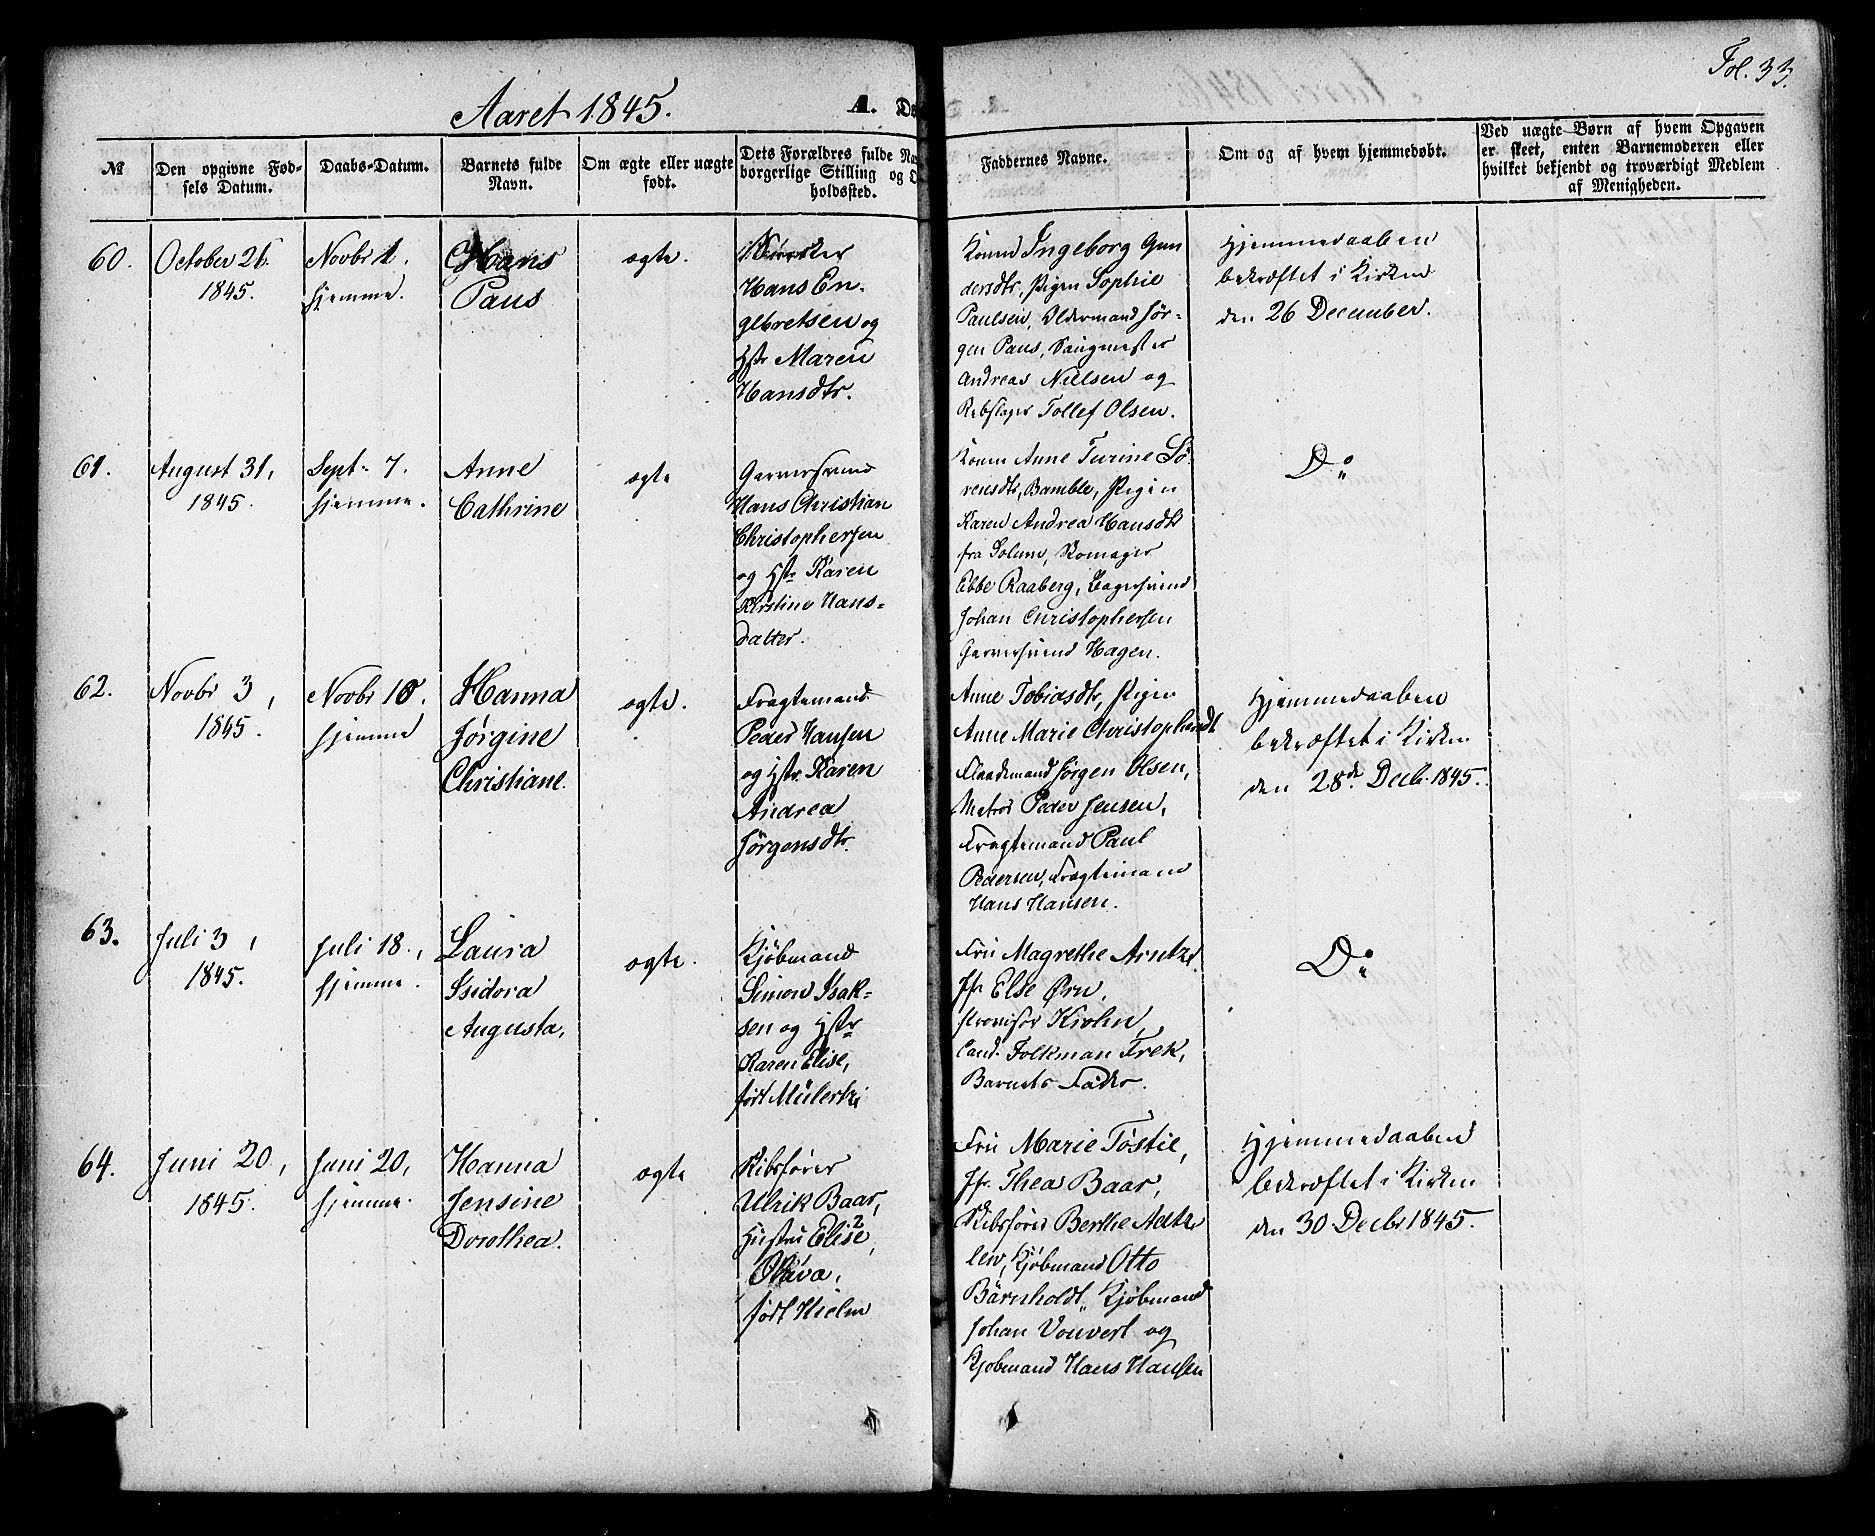 Fol. 33.
Aaret 1845.
A. Dø
№
Den opgivne Fød-
sels Datum.
Daabs-Datum.
Barnets fulde
Navn.
Om ægte eller uægte
født.
Dets Forældres fulde Na
borgerlige Stilling og O
holdssted.
Faddernes Navne.
Om og af hvem hjemmedøbt.
Ved uægte Børn af hvem Opgaven
er skeet, enten Barnemoderen eller
hvilket bekjendt og troværdigt Medlem
af Menigheden.
60.
October 26.
1845.
Novbr 1.
hjemme.
Hans
Paus
ægte.
Hans En-
gebretsen og
Hstr Maren
Hansdtr.
Konen Ingeborg Gun
dersdtr, Pigen Sophie
Paulsen, Oldermand Jör-
gen Paus, Saugmester
Andreas Nielsen og
Rebslager Tollef Olsen.
Hjemmedaaben
bekræftet i Kirken
den 26 December.
61.
August 31,
1845.
Sept. 7.
hjemme.
Anne
Cathrine
ægte
Garversvend
Hans Christian
Christophersen
og Hstr Karen
Kirstine Hans-
datter.
Konen Anne Turine Sö-
rensdtr, Bamble, Pigen
Karen Andrea Hansdtr
fra Solum, Skomager
Ebbe Raaberg, Bagersvend
Johan Christophersen
Garversvend Hagen.
Do
62.
Novbr 3,
1845.
Novbr 10.
hjemme
Hanna
Jørgine
Christiane.
ægte.
Fragtemand
Peder Hansen
og Hstr. Karen
Andrea
Jörgensdtr.
Anne Tobiasdtr, Pigen
Anne Marie Christophersdt
Flaademand Jörgen Olsen,
Matros Peder Jensen,
Fragtemand Paul
Pedersen, Fragtemand
Hans Hansen.
Hjemmedaaben
bekræftet i Kirken
den 28de Decb. 1845.
63.
Juli 3,
1845.
Juli 18.,
hjemme.
Laura
Isidora
Augusta,
ægte.
Kjöbmand
Simon Isak-
sen og Hstr
Karen Elise,
født
Fru Magrethe Arntze
Jfr Else Ørn,
Provisor Krohn,
Cand. Folkman Frek,
Barnets Fader.
Do
64.
Juni 20,
1845.
Juni 20,
hjemme.
Hanna
Jensine
Dorothea.
ægte
Skibsfører
Ulrik Baar,
Hustru Elise 2,
Olava,
født Hielm
Fru Marie Tostie,
Jfr. Thea Baar,
Skibsfører Berthe
lew, Kjöbmand Otto
Bärnholdt, Kjöbmand
Johan Vouvert og
Kjöbmand Hans Hansen
Hjemmedaaben
bekræftet i Kirken
den 30 Decbr 1845.